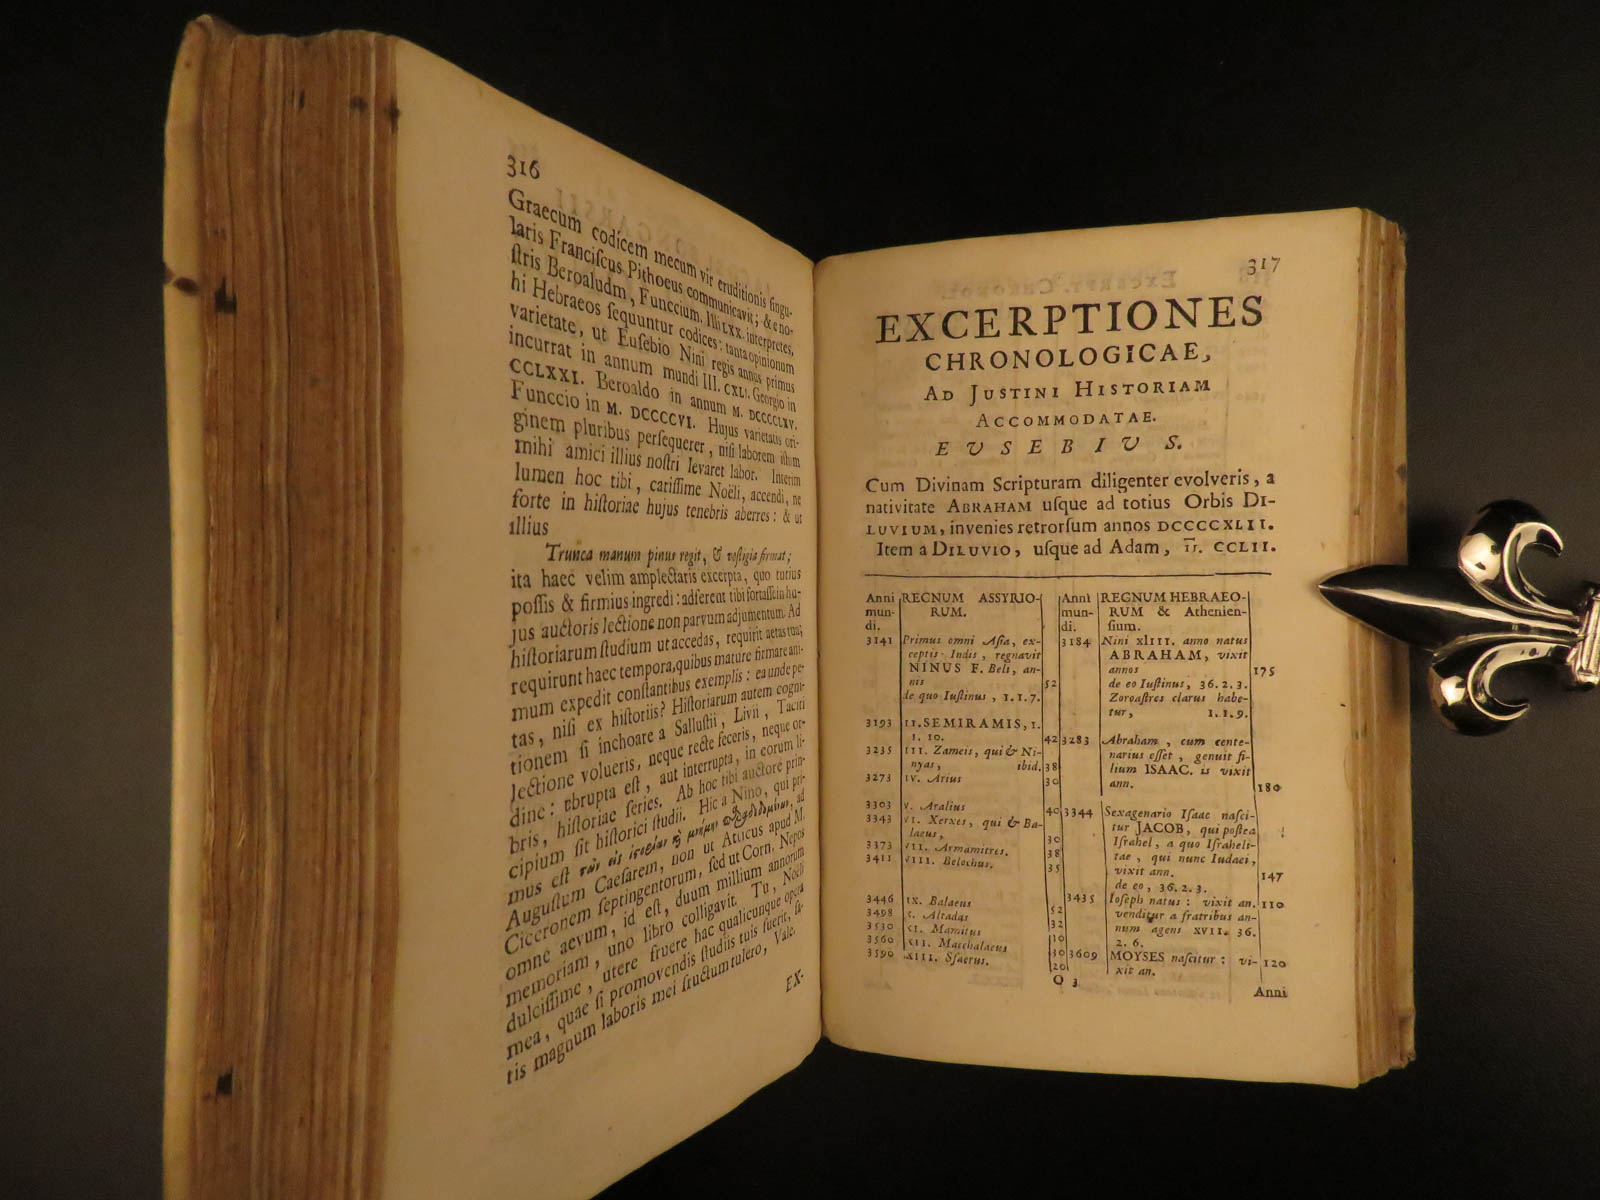 316
Graecum codicem mecum vir eruditionis ſingu-
laris Franciſcus Pithoeus communicavit; & e no-
ſtris Beroaldum, Funccium. Illi LXX. interpretes,
hi Hebraeos ſequuntur codices: tanta opinionum
varietate, ut Euſebio Nini regis annus primus
incurrat in annum mundi III. CXLI. Georgio in
CCLXXI. Beroaldo in annum M. DCCCCLXV.
Funccio in M. DCCCCVI. Hujus varietatis ori-
ginem pluribus perſequerer, niſi laborem iſtum
mihi amici illius noſtri levaret labor. Interim
lumen hoc tibi, cariſſime Noëli, accendi, ne
forte in hiſtoriae hujus tenebris aberres: & ut
illius
Trunca manum pinus regit, & veſtigia firmat;
ita haec velim amplectaris excerpta, quo tutius
poſſis & firmius ingredi: adferent tibi fortaſſe in hu-
jus auctoris lectione non parvum adjumentum. Ad
hiſtoriarum ſtudium ut accedas, requirit aetas tua;
requirunt haec tempora, quibus mature firmare ani-
mum expedit conſtantibus exemplis: ea unde pe-
tas, niſi ex hiſtoriis? Hiſtoriarum autem cogni-
tionem ſi inchoare a Salluſtii, Livii, Taciti
lectione volueris, neque recte feceris, neque or-
dine: abrupta eſt, aut interrupta, in eorum li-
bris, hiſtoriae ſeries. Ab hoc tibi auctore prin-
cipium ſit hiſtorici ſtudii. Hic a Nino, qui pri-
mus eſt ad
Auguſtum Caeſarem, non ut Atticus apud M.
Ciceronem ſeptingentorum, ſed ut Corn. Nepos
omne aevum, id eſt, duum millium annorum
memoriam, uno libro colligavit. Tu, Noëli
dulciſſime, utere fruere hac qualicunque opera
mea, quae ſi promovendis ſtudiis tuis fuerit, ſa-
tis magnum laboris mei fructum tulero, Vale.
EX-
317
EXCERPTIONES
CHRONOLOGICAE,
AD JUSTINI HISTORIAM
ACCOMMODATAE.
EUSEBIUS.
Cum Divinam Scripturam diligenter evolveris, a
nativitate ABRAHAM uſque ad totius Orbis DI-
LUVIUM, invenies retrorſum annos DCCCCXLII.
Item a DILUVIO, uſque ad Adam, II. CCLII.
Anni
mun-
di.
REGNUM ASSYRIO-
RUM.
3141 Primus omni Aſia, ex-
ceptis Indis, regnavit
NINUS F. Beli, an-
nis 52
de quo Iuſtinus, 1.1.7.
3193 II. SEMIRAMIS, 1.
1. 10. 42
3235 III. Zameis, qui & Ni-
nyas, ibid. 38
3273 IV. Arius 30
3303 V. Aralius 40
3343 VI. Xerxes, qui & Ba-
laeus, 30
3373 VII. Armamitres. 38
3411 VIII. Belochus. 35
3446 IX. Balaeus 52
3498 X. Altadas 32
3530 XI. Mamitus
3560 XII. Macchalaeus 30
3590 XIII. Sſaerus. 20
Anni
mun-
di.
REGNUM HEBRAEO-
RUM & Athenien-
ſium.
3184 Nini XLIII. anno natus
ABRAHAM, vixit
annos 175
de eo Iuſtinus, 36.2.3.
Zoroaſtres clarus habe-
tur, 1.1.9.
3283 Abraham, cum cente-
narius eſſet, genuit fi-
lium ISAAC. is vixit
ann. 180
3344 Sexagenario Iſaac naſci-
tur JACOB, qui poſtea
Iſrahel, a quo Iſraheli-
tae, qui nunc Iudaei,
vixit ann. 147
de eo, 36.2.3.
3435 Ioſeph natus: vixit an. 110
venditur a fratribus an-
num agens XVII. 36.
2. 6.
3609 MOYSES naſcitur: vi- 120
xit an.
O 3
Anni